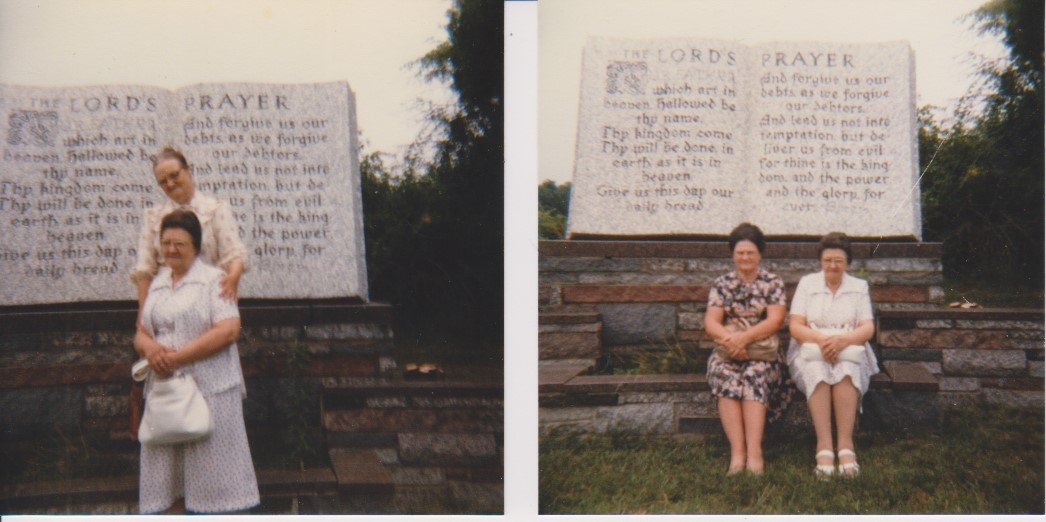 THE LORD'S
which art in
heaven Hallowed be
thy name.
Thy kingdom come
Thy will be done, in
earth as it is in
heaven
Give us this day
daily bread
PRAYER
And forgive us our
debts, as we forgive
our debtors.
And lead us not into
mptation, but de
us from evil
e is the king
the power
glory, for
THE LORD'S
FATHER
which art in
heaven, Hallowed be
thy name.
Thy kingdom come
Thy will be done, in
earth as it is in
heaven
Give us this day our
daily bread
PRAYER
And forgive us our
debts, as we forgive
our debtors.
And lead us not into
temptation, but de
liver us from evil
for thine is the king
dom, and the power
and the glory, for
ever